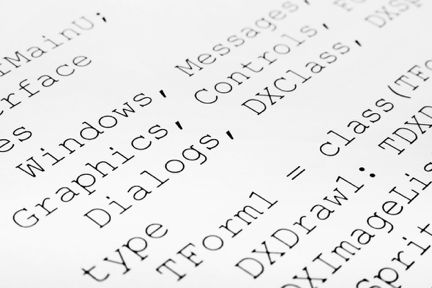 fMainU;
erface
es
Windows, Messages,
Graphics, Controls, Fo
Dialogs, DXClass, DXSp
type
TForm1 = class(TFo
DXDraw1: TDXD
DXImageLis
Sprit